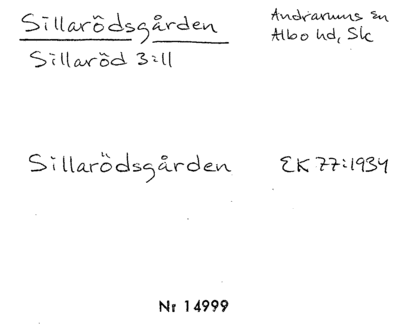 Sillarödsgården
Andrarums sn
Albo hd, Sk
Sillaröd 3:11
Sillarödsgården EK 77:1934
Nr 14999